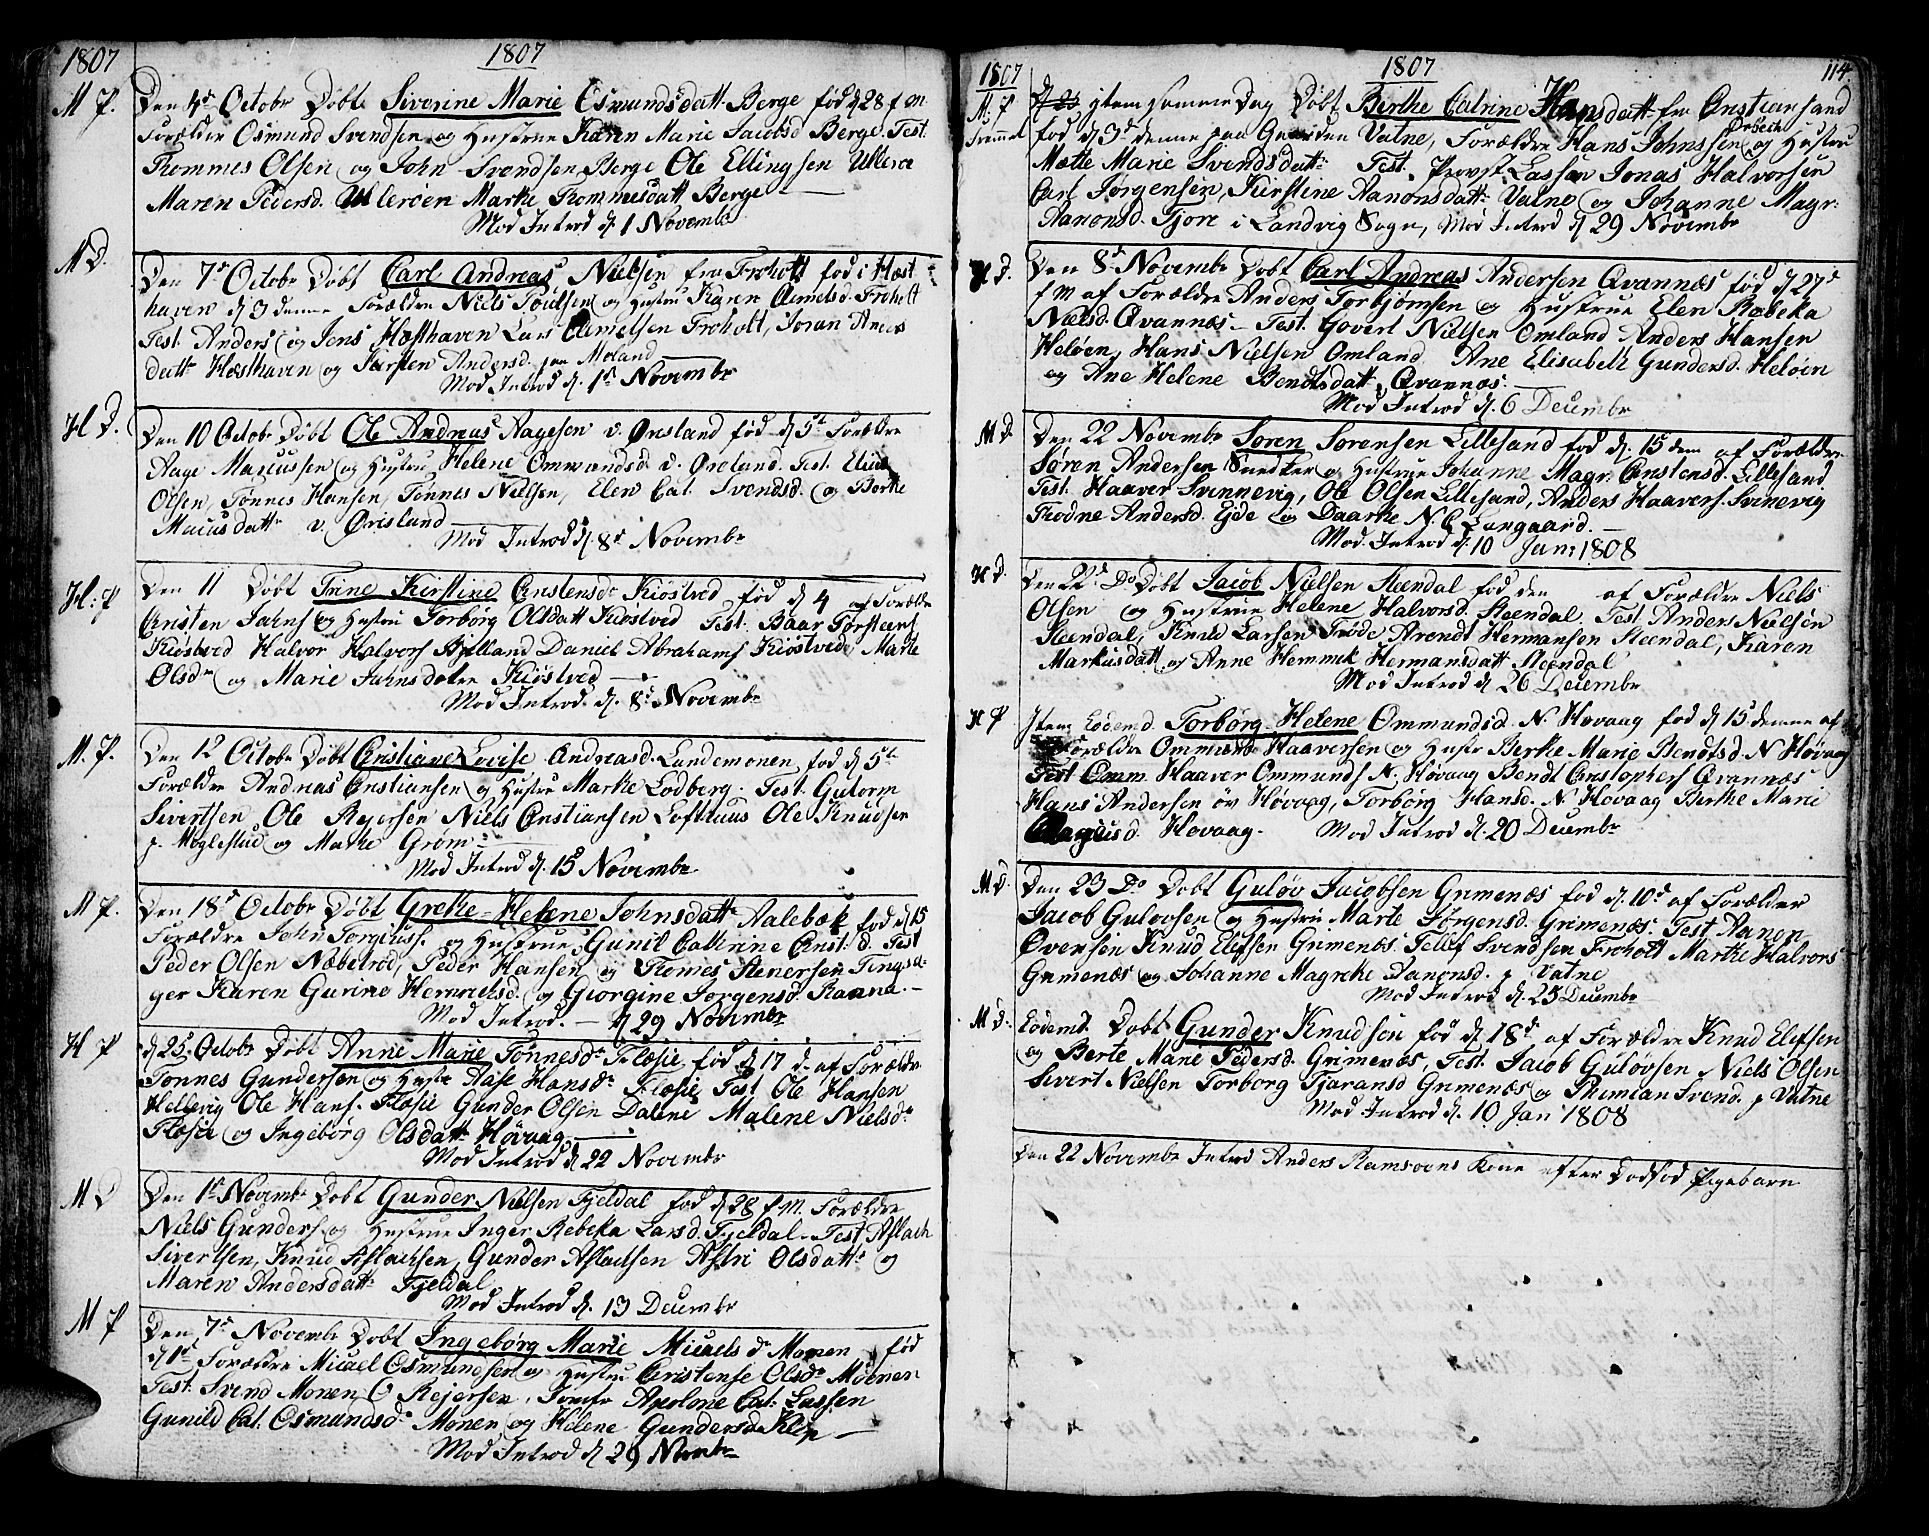 1807
1807
M P.
Den 4de Octobr Døbt Siverine Marie Osmundsdatt. Berge fød d 28 f. m.
Forældre Osmund Svendsen og Hustrue Karen Marie Jacobsd Berge. Test.
Thommes Olsen og John Svendsen Berge Ole Ellingsen Ulleroe
Maren Pedersd. Ulleroen Marthe Thommesdatt Berge
Mod Introd d. 1 Novembr
M D.
Den 7de Octobr Døbt Carl Andreas Nielsen fra Froholt fød i Hæst
haven d 3 denne Forældre Niels Poulsen og Hustrue Karen Oemelsd. Froholt
Test. Anders og Jens Hæsthaven Lars Oemelsen Froholt, Joran Anders
datt. Hæsthaven og Kirsten Andersd. paa Moland
Mod Introd d. 1ste Novembr
H D.
Den 10 Octobr Døbt Ole Andreas Aagesen v. Ørsland fød d 5te Forældre
Aage Marcussen og Hustru Helene Ommundsd v. Øresland. Test. Elias
Olsen, Tønnes Hansen, Tønnes Nielsen, Elen Cat. Svendsd. og Borthe
Macusdattr v. Ørisland
Mod Introd d. 8de Novembr
H: P
Den 11 Døbt Trine Kirstine Cristensdr Kiøstved fød d 4 af Forældre
Cristen Jahns og Hustru Torborg Olsdatt Kiøstved Test. Baar Torstens
Kiøstved Halvor Halvors Bjelland Daniel Abrahams Kiøstved Marte
Olsdr og Marie Jahnsdatre Kiøstved
Mod Introd. d. 8de Novembr
M. P.
Den 12 Octobr Døbt Cristiane Lovise Andreasd. Landemonen fød d 5te
Forældre Andreas Cristiansen og Hustru Marthe Lodberg. Test. Gutorm
Sivertsen Ole Rejersen Niels Cristiansen Lofthuus Ole Knudsen
p. Høglestue og Marthe Grøm
Mod Introd d. 15 Novembr
M P.
Den 18de Octobr Døbt Grethe Helene Johnsdattr Aalebæk fød d 15
Forældre John Torgiuss. og Hustrue Gunil Cathrine Crist. d. Test
Peder Olsen Næbetred, Peder Hansen og Thomes Stenersen Tingsa-
ger Karen Gurine Henrichsd. og Giorgine Jørgensd. Ranna.
Mod Introd. d 29 Novembr
H P
d 25 Octobr Døbt Anne Marie Tønnesdr Flæsie fød d 17 d. af Forældre
Tønnes Gundersen og Hustr Aase Hansdr Flæsie Test Ole Hansen
Hellevig Ole Hans. Flæsie Gunder Olsen Dalene Malene Nielsdr
Flæsie og Ingeborg Olsdattr Høvaag
Mod Introd d 22 Novembr
M D
Den 1ste Novembr Døbt Gunder Nielsen Fjeldal fød d 28 f. M. Forældre
Niels Gunders og Hustrue Inger Rebeka Larsd. Fjeldal. Test Aslach
Sivertsen, Knud Aslachsen, Gunder Aslachsen Astri Olsdattr og
Maren Andersdattr Fjeldal
Mod Introd d. 13 Decembr
M P
Den 7de Novembr Døbt Ingeborg Marie Micaels dr Monen fød
d 1ste Forældre Micael Osmundsen og Hustru Cristense Olsdr Moenen
Test. Svend Monen O Rejersen, Jomfr Apolone Cat. Lassen
Gunild Cat. Osmundsdr Monen og Helene Gundersdr Klep
Mod Introd d 29 Novbr
1807
1807
114.
M. P
Fremmed
d 23 item samme Dag Døbt Berthe Catrine Hansdatt. fra Cristiansand
fød d 3de denne paa Gaarden Vatne, Forældre Hans Johnssen Drbeck og Hustru
Mætte Marie Svendsdattr Test. Provst Lassen Jonas Halvorsen
Carl Jørgensen, Kirstine Aanonsdattr Vatne og Johanne Magr.
Aanonsd. Fjore i Landvig Sogn, Mod Introd d 29 Novembr
H D.
Den 8de Novembr Døbt Carl Andreas Andersen Qvannæs fød d 27de
f M af Forældre Anders Torbjørnsen og Hustrue Elen Rebeka
Nielsd. Qvannæs. Test. Govert Nielsen Omland Anders Hansen
Heløen, Hans Nielsen Omland Ane Elisabeth Gundersd. Heløen
og Ane Helene Bendtsdatt. Qvannæs.
Mod Introd d. 6 Decembr
M D
Den 22 Novembr Søren Sørensen Lillesand fød d. 15 dene af Forældre
Søren Andersen Snedker og Hustrue Johanne Magr. Cristensd. Lillesand
Test. Haaver Svennevig, Ole Olsen Lillesand, Anders Haavers. Svinevig
Trodne Andersd. Eide og Daarthe N. C Langaard.
Mod. Introd d. 10 Jan: 1808
H D.
Den 22de Do Døbt Jacob Nielsen Steendal fød den af Forældre Niels
Olsen og Hustrue Helene Halvorsd. Steendal. Test. Anders Nielsen
Steendal, Knud Larsen Trøde Arendt Hermansen Steendal, Karen
Markusdatt og Anne Hemmik Hermansdatt Steendal
Mod Introd d 26 Decembr
H P
Item Eodem d. Torborg Helene Ommundsd. N. Hovaag fød d 15 denne af
Forældre Ommund Haaversen og Hustr Berthe Marie Bendtsd. N Høvaag
Test Omm. Haaver Ommunds N. Høvaag Bendt Cristophers Qvannæs
Hans Andersen øv Høvaag, Torborg Hansd. N. Hovaag Berthe Marie
Magnusd. Hovaag. Mod Introd d. 20 Decembr
M D.
Den 23 Do Døbt Guløv Jacobsen Grimenæs fød d. 10de af Forældre
Jacob Guløvsen og Hustru Marte Jørgensd. Grimenæs. Test Aanen
Ovensen Knud Elefsen Grimenæs. Tellef Svendsen Froholt Marthe Halvors
Grimenæs og Johanne Magrethe Aanonsd. p Vatne
Mod Introd d. 25 Decembr
M D.
Eodemd. Døbt Gunder Knudsen fød d 18de af Forældre Knud Elefsen
og Berte Marie Pedersd. Grimenæs, Test. Jacob Guløvsen Niels Olsen
Sivert Nielsen Torborg Tjøransd Grimenæs og Svend. p Vatne
Mod Introd d. 10 Jan 1808
Den 22 Novembr Introd Anders Ramsøens Kone efter Dødfød Pigebarn